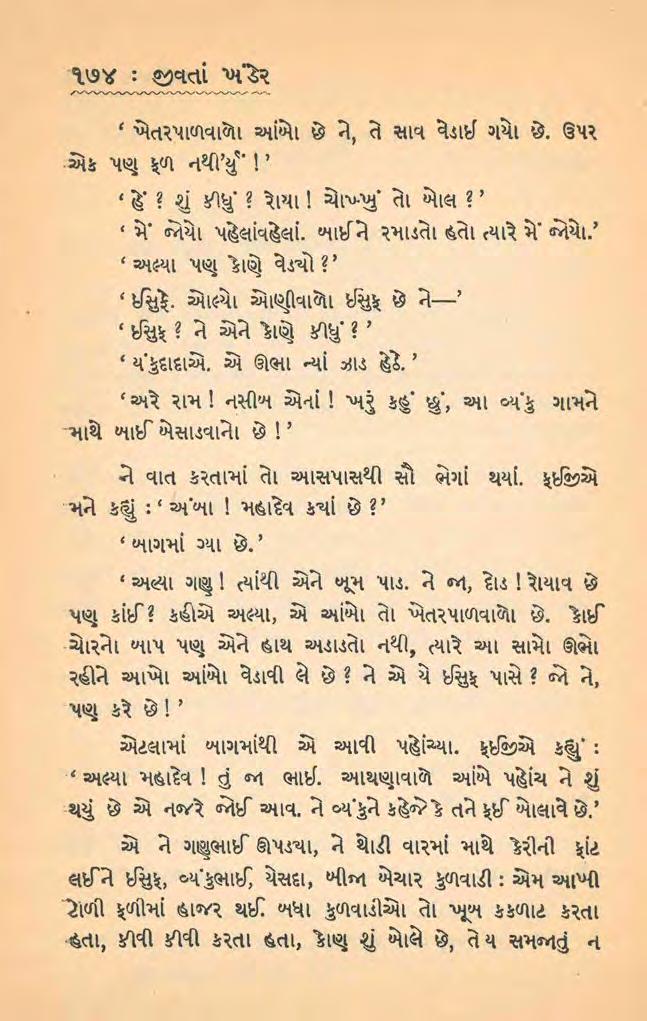 ૧૭૪ : જીવતાં ખંડેર
‘ ખેતરપાળવાળો આંબો છે ને, તે સાવ વેડાઈ ગયો છે. ઉપર
એક પણ ફળ નથી’ર્યું ! ’
‘ હેં ? શું કીધું ? રોયા ! ચોખ્ખું તો બોલ ? ’
‘ મેં જોયો પહેલાંવહેલાં. બાઈને રમાડતો હતો ત્યારે મેં જોયો.’
‘ અલ્યા પણ કોણે વેડ્યો ? ’
‘ ઈસુફે. ઓલ્યો ઓણીવાળો ઈસુફ છે ને—’
‘ ઈસુફ ? ને એને કોણે કીધું ? ’
‘ યંકુદાદાએ. એ ઊભા ન્યાં ઝાડ હેઠે. ’
‘ અરે રામ ! નસીબ એનાં ! ખરું કહું છું, આ વ્યંકુ ગામને
માથે બાઈ બેસાડવાનો છે ! ’
ને વાત કરતામાં તો આસપાસથી સૌ ભેગાં થયાં. ફઈજીએ
મને કહ્યું : ‘ અંબા ! મહાદેવ ક્યાં છે ? ’
‘ બાગમાં ગ્યા છે. ’
‘ અલ્યા ગણુ ! ત્યાંથી એને બૂમ પાડ. ને જા, દોડ ! રોયાવ છે
પણ કાંઈ ? કહીએ અલ્યા, એ આંબો તો ખેતરપાળવાળો છે. કોઈ
ચોરનો બાપ પણ એને હાથ અડાડતો નથી, ત્યારે આ સામો ઊભો
રહીને આખો આંબો વેડાવી લે છે ? ને એ યે ઈસુફ પાસે ? જો ને,
પણ કરે છે ! ’
એટલામાં બાગમાંથી એ આવી પહોંચ્યા. ફઈજીએ કહ્યું :
‘ અલ્યા મહાદેવ ! તું જા ભાઈ. આથણાવાળે આંબે પહોંચ ને શું
થયું છે એ નજરે જોઈ આવ. ને વ્યંકુને કહેજે કે તને ફઈ બોલાવે છે.’
એ ને ગણુભાઈ ઊપડ્યા, ને થોડી વારમાં માથે કેરીની ફાંટ
લઈને ઈસુફ, વ્યંકુભાઈ, યેસદા, બીજા બેચાર કુળવાડી : એમ આખી
ટોળી ફળીમાં હાજર થઈ. બધા કુળવાડીઓ તો ખૂબ કકળાટ કરતા
હતા, કીવી કીવી કરતા હતા, કોણ શું બોલે છે, તે ય સમજાતું ન